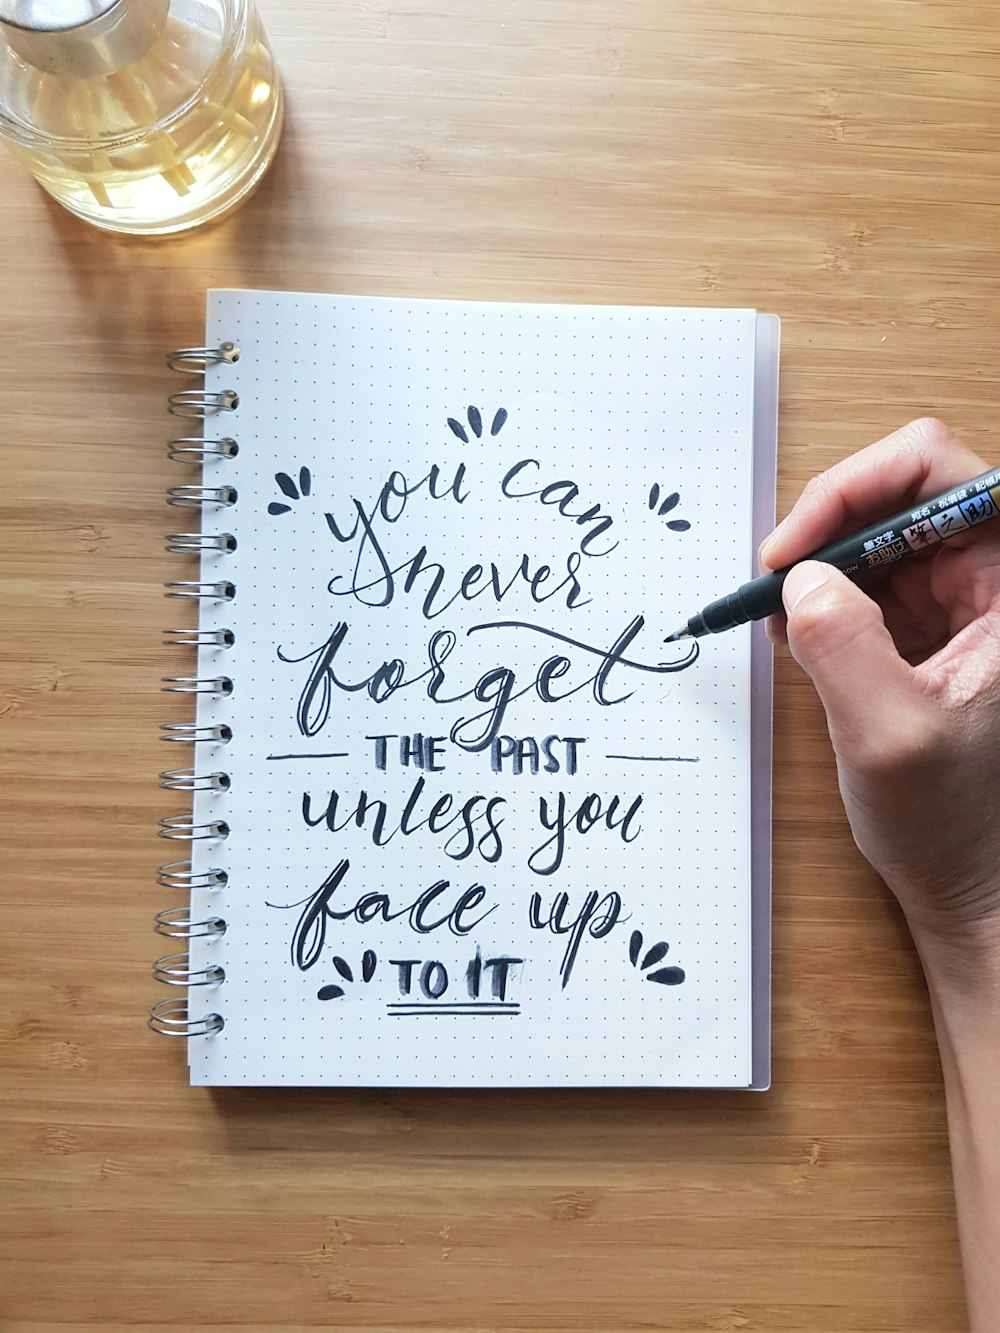 you can
never
forget
THE PAST
unless you
face up
TO IT
宛名・祝儀袋・記帳用
筆之助
筆文字
お助け